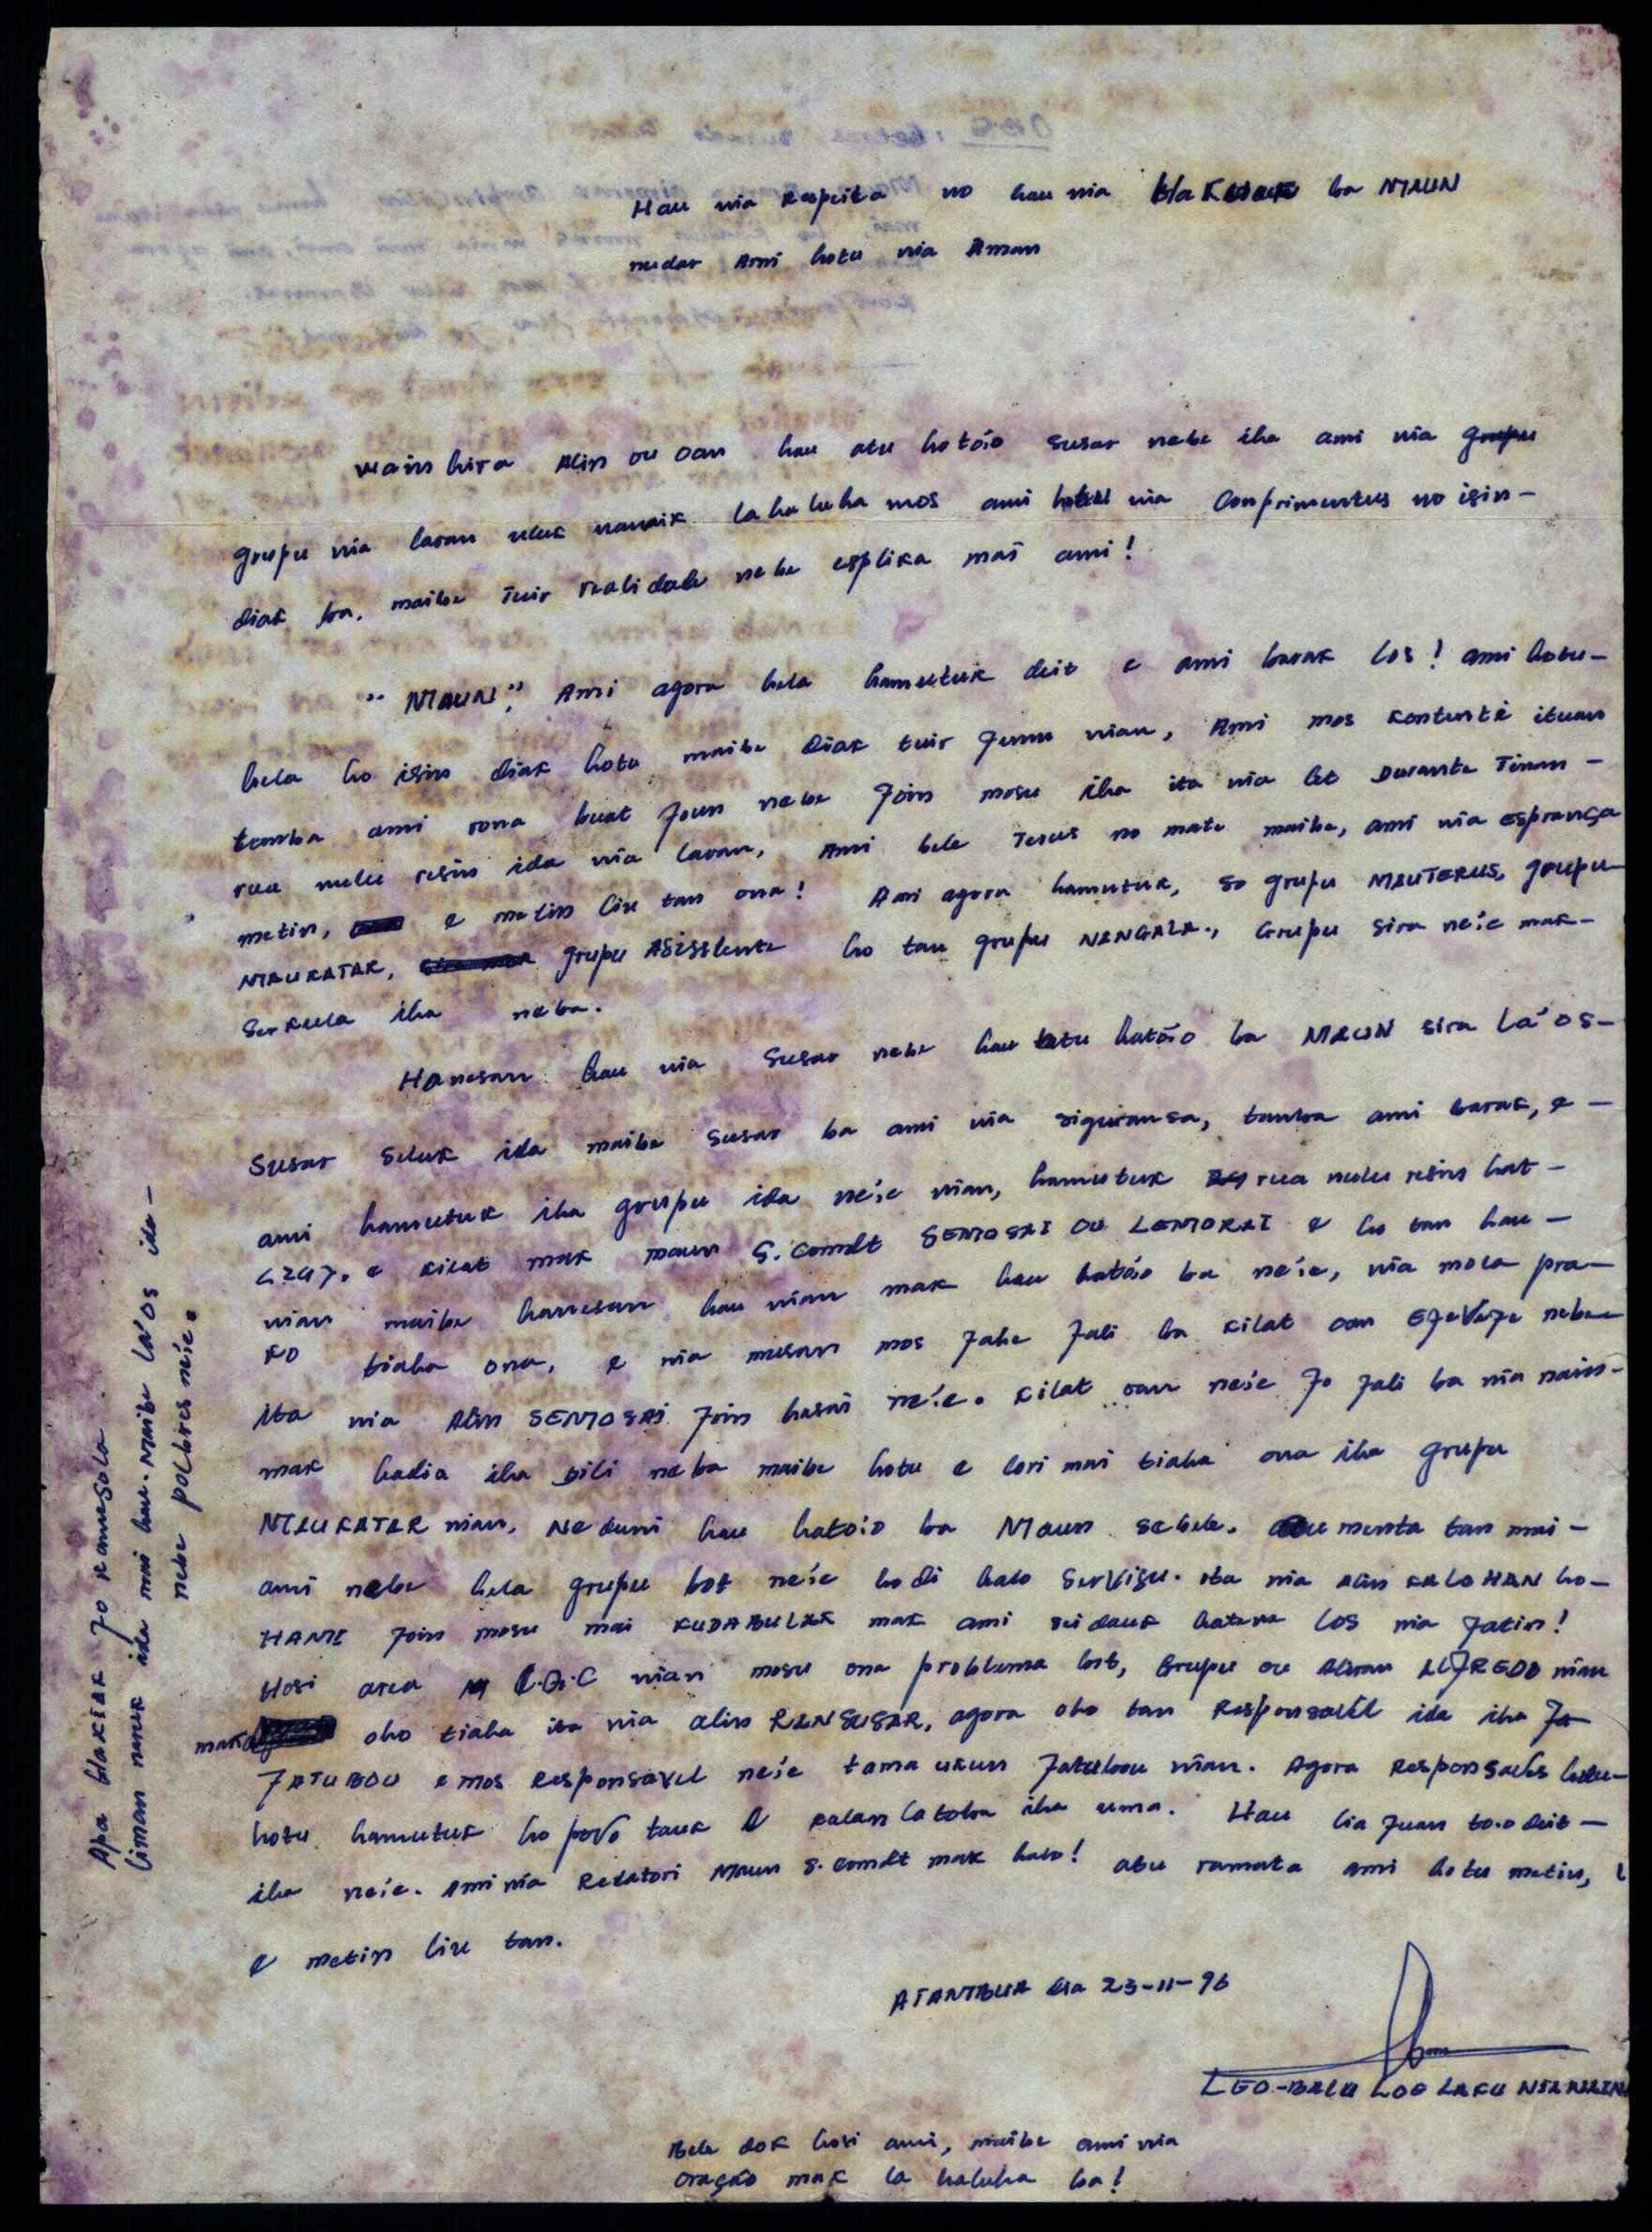 Hau nia Respeita no hau nia ba MAUN
nudar Ami hotu nia Aman
wainhira Alin ou oan hau atu ható'o susar nebe iha ami nia grupu
grupu nia laran uluk nanaik la haluha mos ami hotu nia Conprimentus no isin-
diak ba. maibe Tuir realidade nebe esplika mai ami!
"MAUN", Ami agora hela hamutuk deit e ami barak los! ami hotu-
hela ho isin diak hotu maibe diak tuir funu nian, Ami mos kontente ituan
tamba ami rona buat foun nebe foin mosu iha ita nia let Durante Tinan-
rua nulu resin ida nia laran, Ami bele Terus no mate maibe, ami nia Esprança
metin, e metin liu tan ona! Ami agora hamutuk, so grupu MAUTERUS, grupu
MAUKATAR, grupu Asisstente ho tan grupu NANGALA., Grupu sira ne'e mak-
Serkula iha neba.
Hanesan hau nia Susar nebe hau atuható'o ba MAUN sira lá'os-
Susar Seluk ida maibe Susar ba ami nia siguransa, tamba ami barak, e-
ami hamutuk iha grupu ida ne'e nian, hamutuk rua nulu resin hat-
(24). e kilat mak maun S. Comdt SEMO SAI OU LEMORAI e ho tan hau-
nian maibe hanesan hau nian mak hauható'o ba ne'e, nia mola pra-
ko tiaha ona, e nia mesan mos fahe fali ba kilat oan nebe
ita nia Alin SEMO SAI foin hasai ne'e. kilat oan ne'e fo fali ba nia nain-
mak hadia iha Dili neba maibe hotu e lori mai tiaha ona iha grupu
MAUKATAR nian. Neduni hau hato'o ba Maun sebele. aumenta tan mai-
ami nebe hela grupu bot ne'e hodi halo Servisu. ita nia Alin KALOHAN ho-
HAME foin mosu mai KUDABULAK mak ami seidauk hatene los nia fatin!
Hosi area nian mosu ona problema bot, Grupu ou Aliran ALFREDO nian
mak oho tiaha ita nia alin RANSUSAR, agora oho tan Responsavel ida iha
FATUBOU e mos Responsavel ne'e tama ukun Fatubou nian. Agora Responsaveis hotu-
hotu hamutuk ho povo tauk e kalan la toba iha uma. Hau lia fuan to'o deit-
iha ne'e. Ami nia Relatori Maun S. Comdt mak halo! atu ramata ami hotu metin,
e metin liu tan.
ATAMBUA dia 23-11-96
LEO-BALU LOE LAKU
Bele dok hosi ami, maibe ami nia
oração mak la haluha ba!
Apa blakiak fo
liman naruk ida mai hau. Maibe lá'os ida-
nebe pobres ne'e.